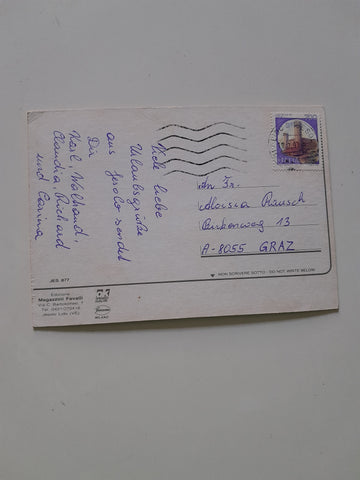 Viele liebe
Urlaubsgrüße
aus Jesolo sendet
Dir
Karl, Waltraud,
Claudia, Richard
und Carina
An Fr.
Aloisia Rausch
13
A-8055 GRAZ
NON SCRIVERE SOTTO - DO NOT WRITE BELOW
JES. 877
Edizione
Magazzini Favalli
Jesolo Lido (VE)
MILANO